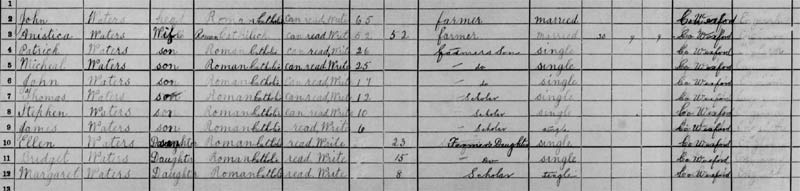 1
2 John Waters Head Roman Catholic can read, Write 65 farmer married Co Wexford
3 Anistica Waters Wife Roman Catholick can read, Write 52 52 farmer married 30 9 9 Co Wexford
4 Patrick Waters son Roman Catholic can read, Write 26 farmers Son single Co Wexford
5 Micheal Waters son Roman Catholic can read Write 25 " do single Co Wexford
6 John Waters son Roman Catholic can read Write 17 " do single Co Wexford
7 Thomas Waters son Roman Catholic can read, Write 12 Scholar single Co Wexford
8 Stephen Waters son Roman Catholic can read Write 10 Scholar single Co Wexford
9 James Waters son Roman Catholic read, Write 6 Scholar single Co Wexford
10 Ellen Waters Daughter Roman Catholic read Write 23 Farmers Daughter single Co Wexford
11 Bridget Waters Daughter Roman Catholic read Write 15 " Do single Co Wexford
12 Margaret Waters Daughter Roman Catholic read Write 8 Scholar single Co Wexford
13